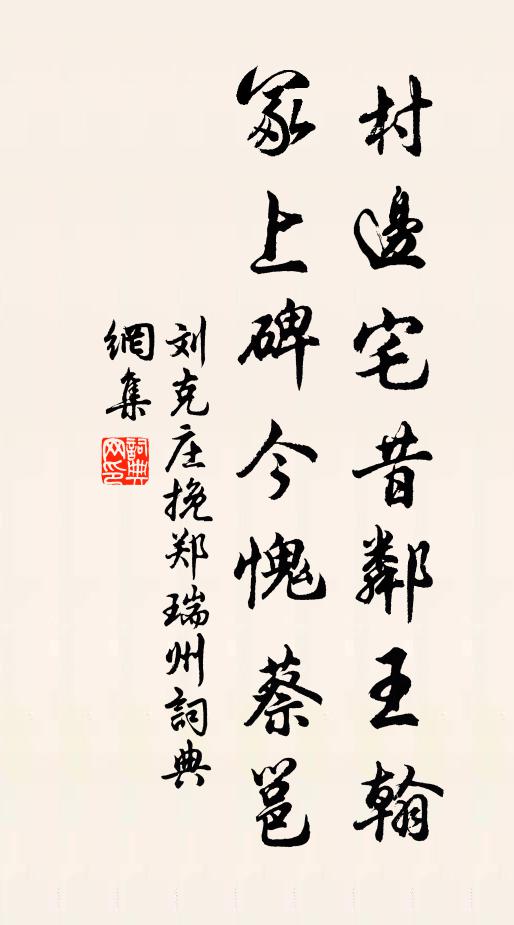 村邊宅昔鄰王翰
冢上碑今愧蔡邕
刘克庄挽郑瑞州詞典
網集
詞典网印